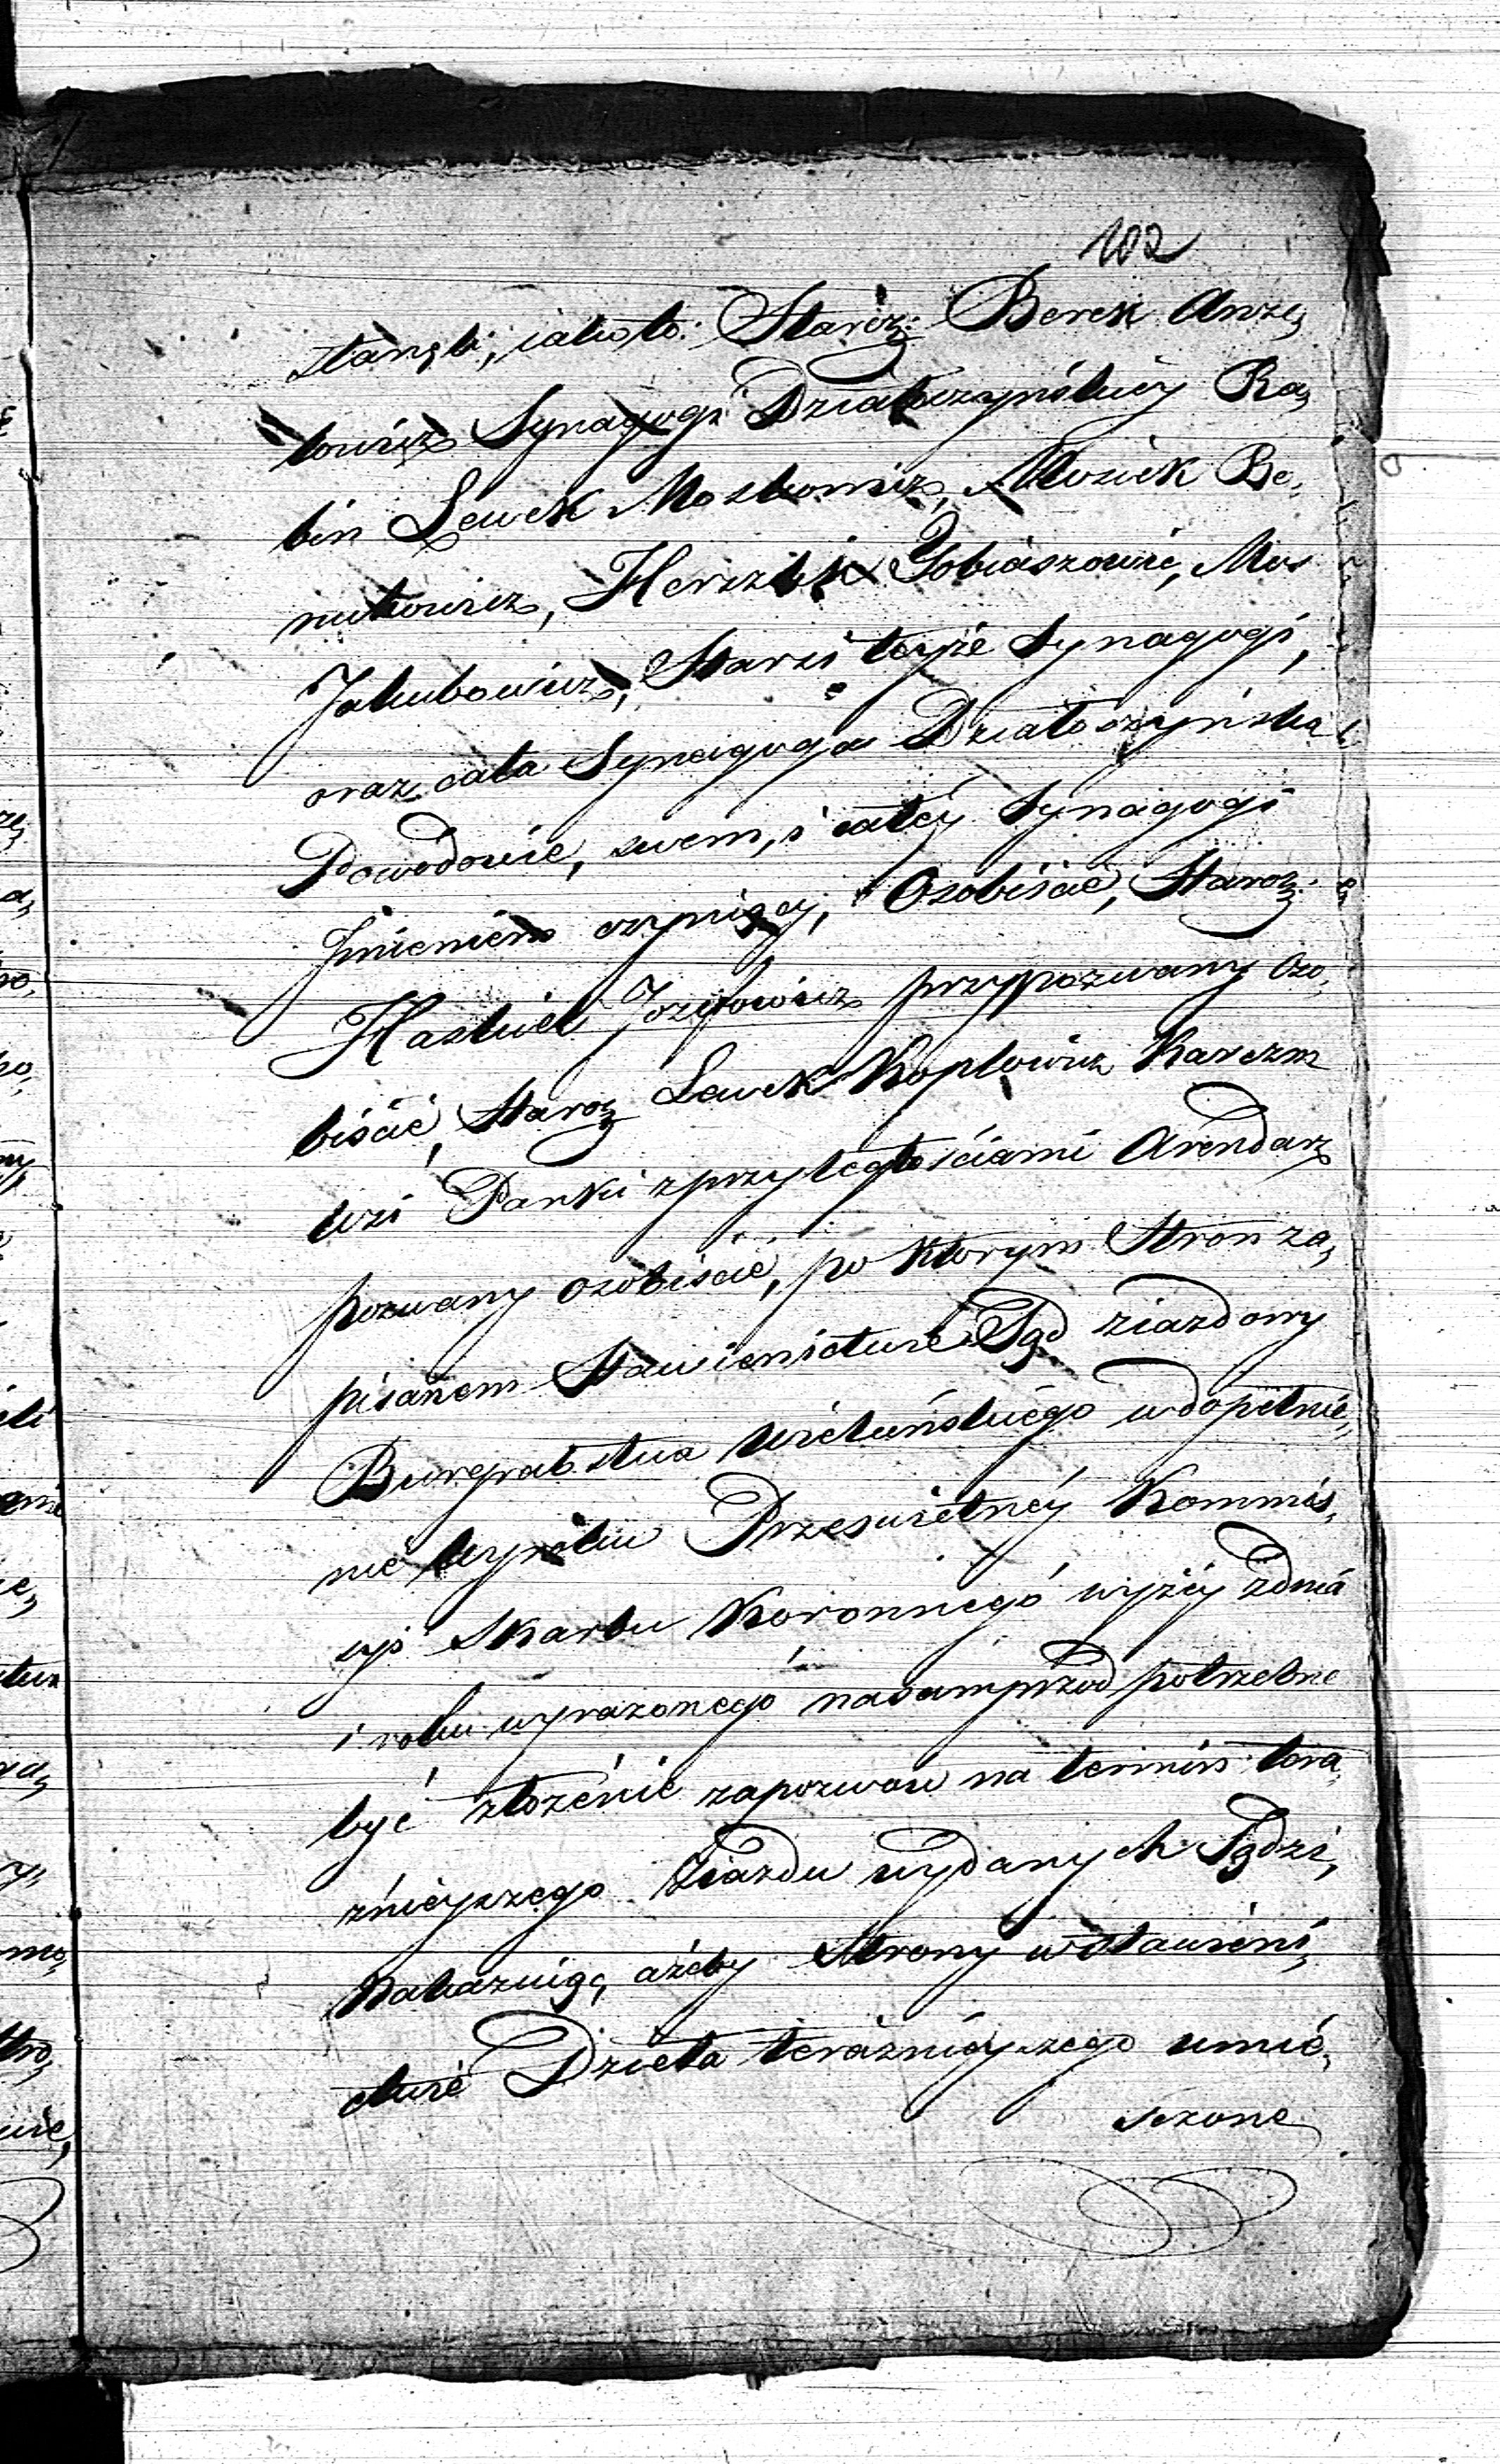 102
stanęli, iako to: Starsz: Berek Anze,
lowicz Synagogi Działoszynskiey Ra,
bin Lewek Moszkowicz, Mosiek Be,
nutowicz, Herszlik Jobiaszowic, Mos
Jakubowicz, Starsi teyże Synagogi,
oraz cała Synagoga Działoszyńska
Powodowie, swem, i całey Synagogi
Jmieniem czyniący, Osobiscie, Starsz
Haskiel Jozefowicz przypozwany Oso,
biście, Starsz Lewek Koplowicz Karczm
wsi Parki z przyległościami Arendarz
pozwany osobiscie, po ktorym Stron za,
pisanem Stawienictwie Sąd ziazdowy
Burgrabstwa Wieluńskiego w dopełnie,
nie Wyroku Prześwietney Kommis,
syi Skarbu Koronnego wyżey z dnia
i roku wyrażonego nasamprzod potrzebne
być złożenie zapozwow na termin tera,
znieyszego Ziazdu wydanych Sądzi,
Nakazuiąc, ażeby Strony w stawieni,
ctwie Dzieła teraznieyszego umie,
szczone